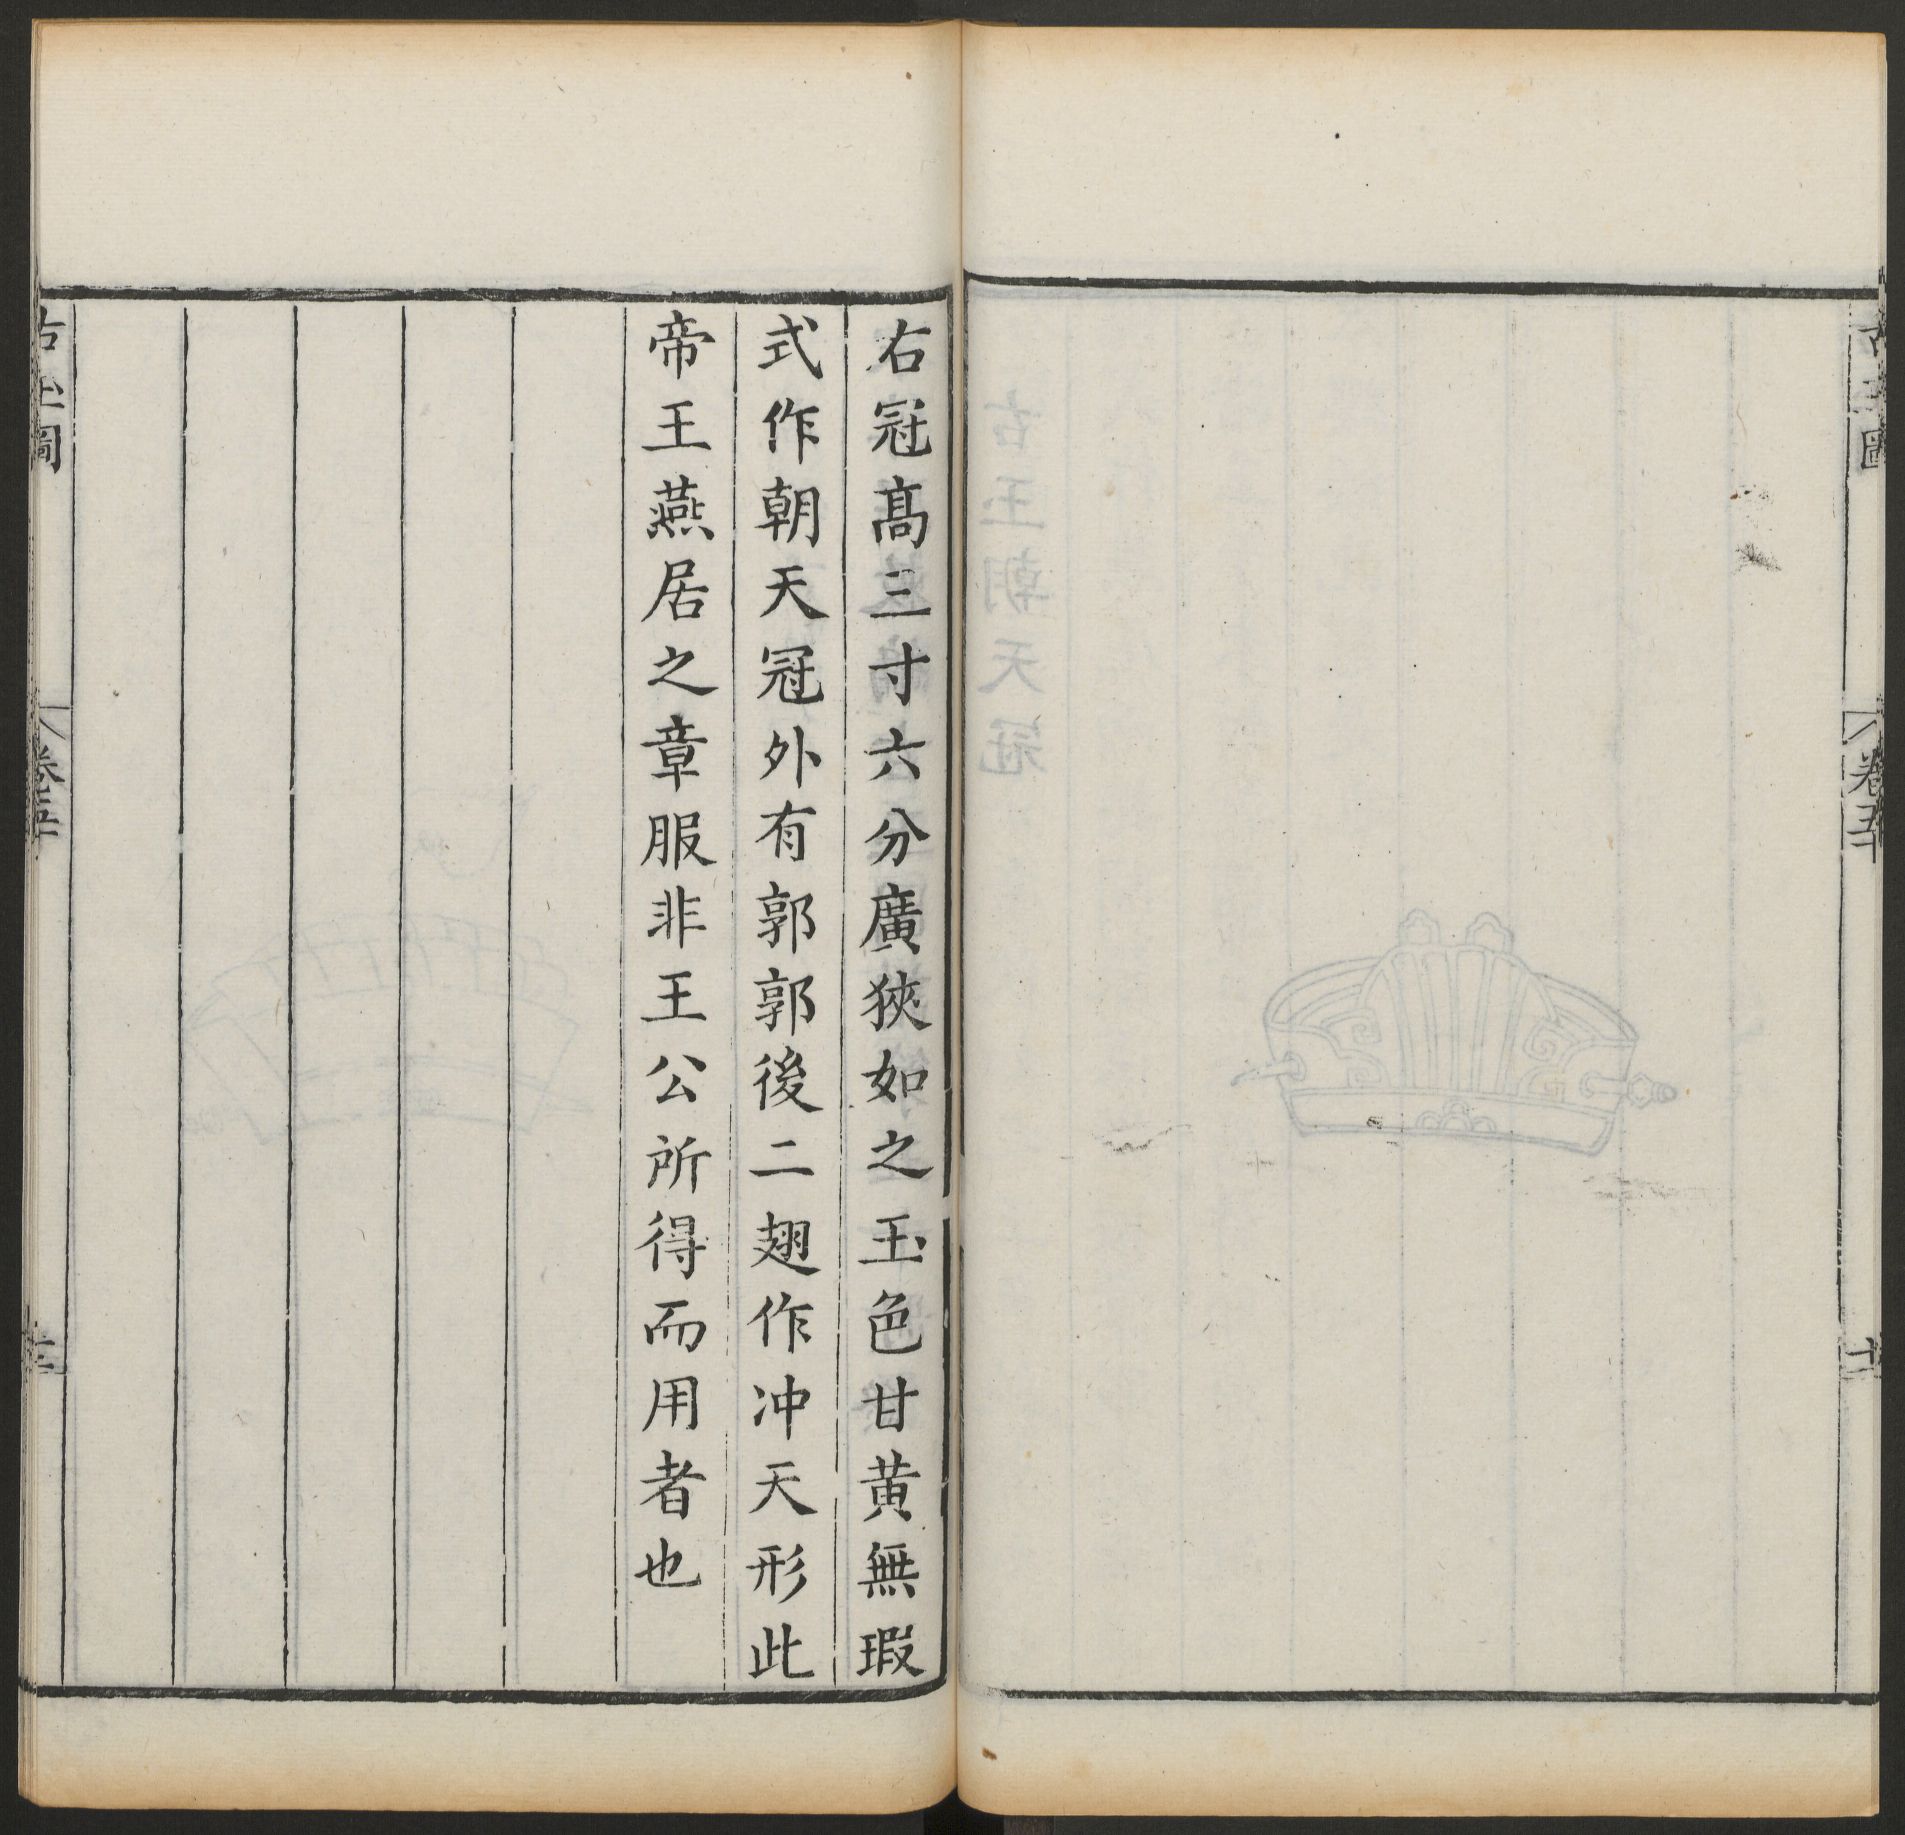 古玉圖
卷五十
十二
右冠髙三寸六分廣狹如之玉色甘黄無瑕
式作朝天冠外有郭郭後二翅作冲天形此
帝王燕居之章服非王公所得而用者也
古玉圖